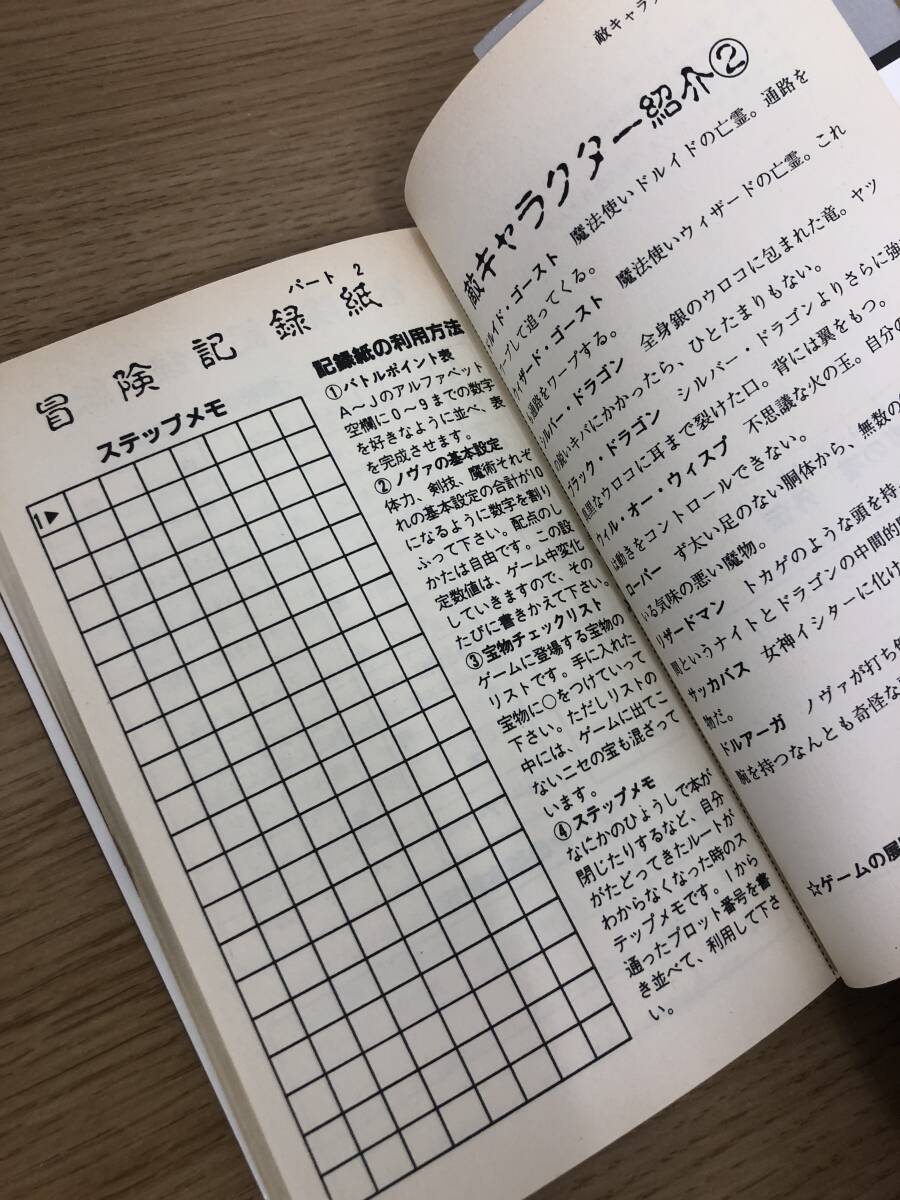 パート 2
冒険記録紙
ステップメモ
1▶
記録紙の利用方法
①バトルポイント表
A〜Jのアルファベット
空欄に0〜9までの数字
を好きなように並べ、表
を完成させます。
②ノヴァの基本設定
体力、剣技、魔術それぞ
れの基本設定の合計が10
になるように数字を割り
ふって下さい。配点のし
かたは自由です。この設
定数値は、ゲーム中変化
していきますので、その
たびに書きかえて下さい。
③宝物チェックリスト
ゲームに登場する宝物の
リストです。手に入れた
宝物に○をつけていって
下さい。ただしリストの
中には、ゲームに出てこ
ないニセの宝も混ざって
います。
④ステップメモ
なにかのひょうしで本が
閉じたりするなど、自分
がたどってきたルートが
わからなくなった時のス
テップメモです。1から
通ったプロット番号を書
き並べて、利用して下さ
い。
敵キャラク
敵キャラクター紹介②
ルイド・ゴースト 魔法使いドルイドの亡霊。通路を
ープして追ってくる。
ィザード・ゴースト 魔法使いウィザードの亡霊。これ
通路をワープする。
シルバー・ドラゴン 全身銀のウロコに包まれた竜。ヤツ
の鋭いキバにかかったら、ひとたまりもない。
ラック・ドラゴン シルバー・ドラゴンよりさらに強
黒なウロコに耳まで裂けた口。背には翼をもつ。
ウィル・オー・ウィスプ 不思議な火の王。自分の
動きをコントロールできない。
ローパー ず太い足のない胴体から、無数の
いる気味の悪い魔物。
リザードマン トカゲのような頭を持
間というナイトとドラゴンの中間的
サッカバス 女神イシターに化け
物だ。
ドルアーガ ノヴァが打ち
腕を持つなんとも奇怪な
☆ゲームの展